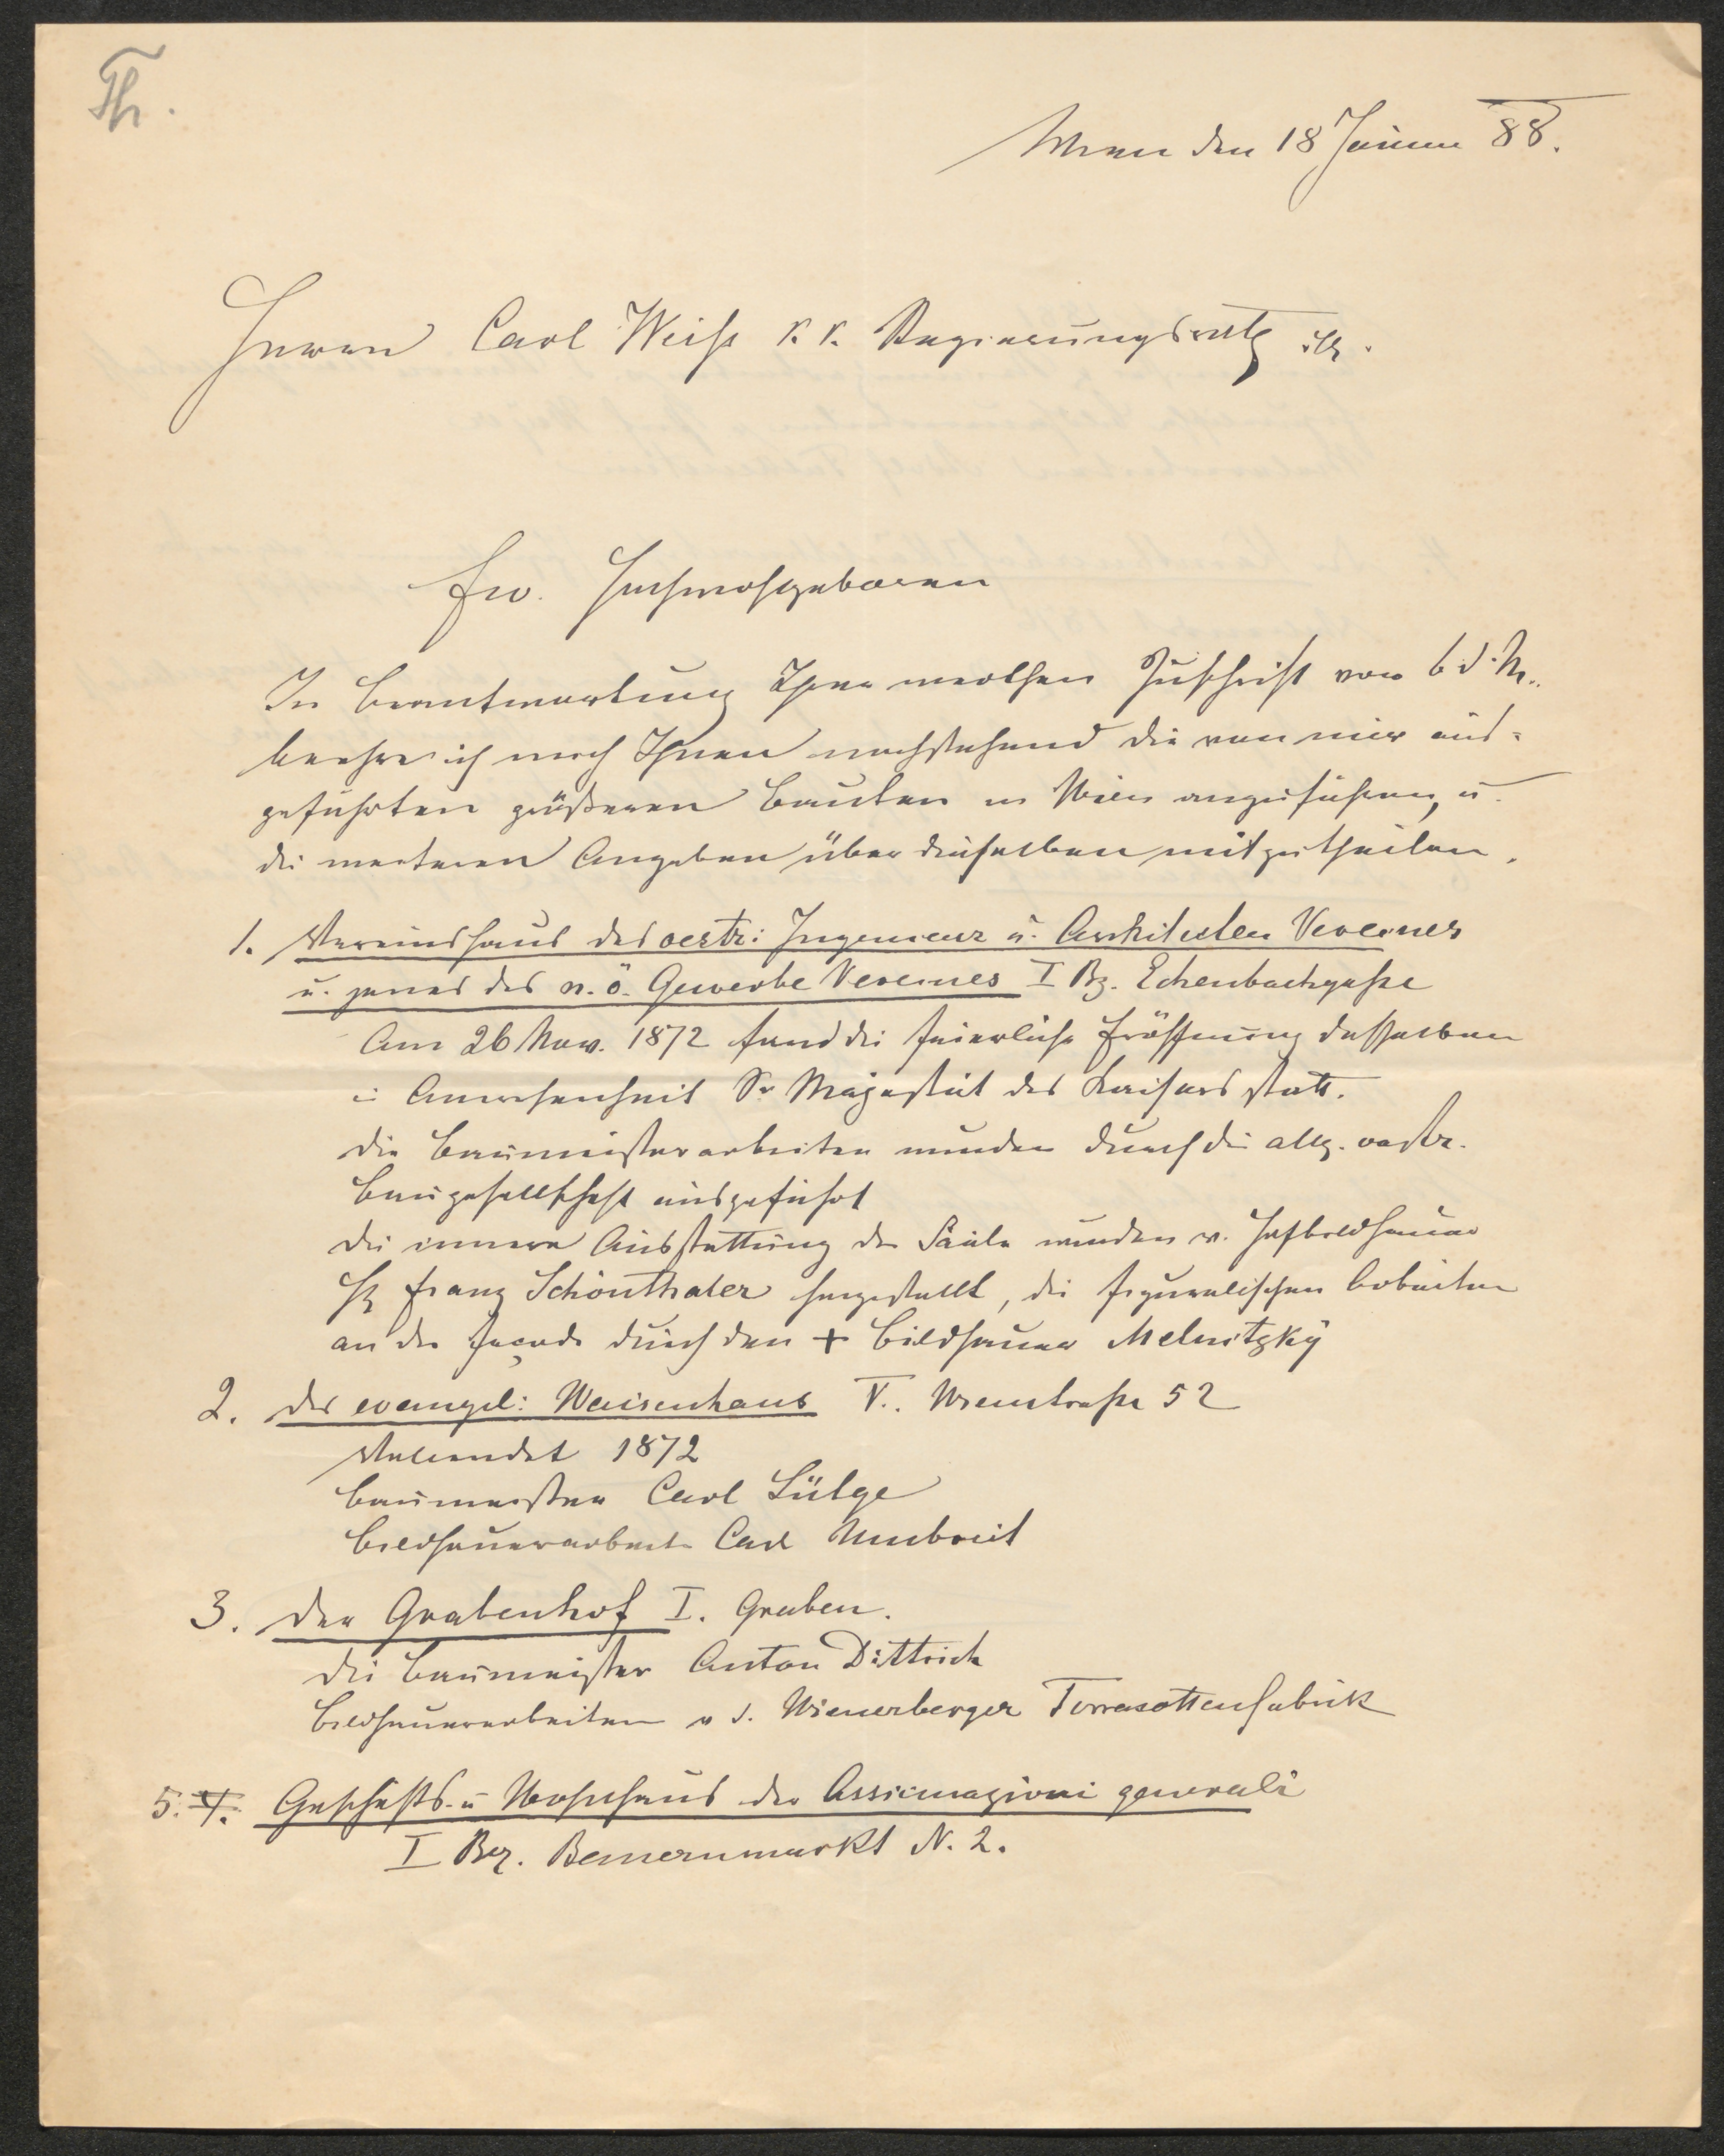 Th.
Wien den 18 Jänner 88.
Herrn Carl Weiß k. k. Regierungsrath etz.
Ew. Hochwohlgeboren
In Beantwortung Ihrer werthen Zuschrift vom 6 d. M.
beehre ich mich Ihnen nachstehend die von mir aus-
geführten größeren Bauten in Wien anzuführen, u.
die weiteren Angaben über dieselben mitzutheilen.
1. Vereinshaus des oestr: Ingenieur u. Architecten Vereines
u. jenes des n. ö. Gewerbe Vereines I Bz. Echenbachgaße
Am 26 Nov. 1872 fand die feierliche Eröffnung desselben
in Anwesenheit Sr Majestät des Kaisers statt.
Die Baumeisterarbeiten wurden durch die allg. oestr.
Baugesellschaft ausgeführt
Die innere Ausstattung der Säale wurden v. Hofbildhauer
H Franz Schönthaler hergestellt, die figuralischen Arbeiten
an der Façade durch den + Bildhauer Melnitzky
2. Das evangel: Waisenhaus V.. Wienstraße 52
Vollendet 1872
Baumeister Carl Lütge
Bildhauerarbeit Carl Umbreit
3. Der Grabenhof I. Graben.
Die Baumeister Anton Dittrich
Bildhauerarbeiten v d. Wienerberger Terracottenfabrik
5. 4. Geschäfts- u Wohnhaus der Assicurazioni generali
I Bez. Bauernmarkt N. 2.